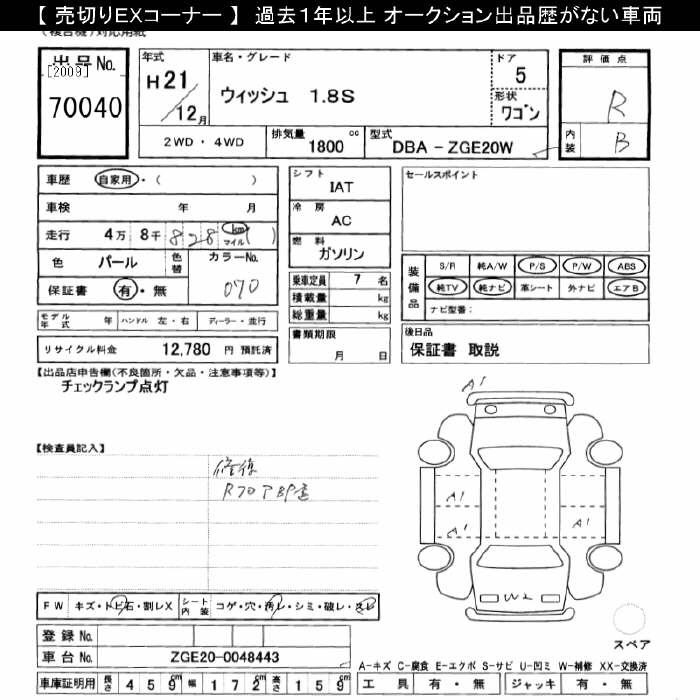 【 売切りEXコーナー 】 過去1年以上 オークション出品歴がない車両
(複合機)対応用紙
出品No. [2009] 70040
年式 H21/12月
車名・グレード ウィッシュ 1.8S
ドア 5
形状 ワゴン
評価点 R
内装 B
2WD・4WD
排気量 1800 cc
型式 DBA-ZGE20W
車歴 自家用・( )
車検 年 月
走行 4万 8千 8 2 8 km マイル ( )
色 パール 色替 カラーNo. 070
保証書 有・無
モデル年式 年 ハンドル 左・右 ディーラー・並行
リサイクル料金 12,780 円 預託済
シフト IAT
冷房 AC
燃料 ガソリン
乗車定員 7 名
積載量 kg
総重量 kg
書類期限 月 日
セールスポイント
装備品 S/R 純A/W P/S P/W ABS
純TV 純ナビ 革シート 外ナビ エアB
ナビ型番:
後日品
保証書 取説
【出品店申告欄(不良箇所・欠品・注意事項等)】
チェックランプ点灯
【検査員記入】
修復
A1
A1
A1
A1
W2
FW キズ・トビ石・割レX シート内装 コゲ・穴・汚レ・シミ・破レ・スレ
登録No.
車台No. ZGE20-0048443
スペア
A-キズ C-腐食 E-エクボ S-サビ U-凹ミ W-補修 XX-交換済
車庫証明用 長さ 459cm 幅 172cm 高さ 159cm
工具 有・無 ジャッキ 有・無